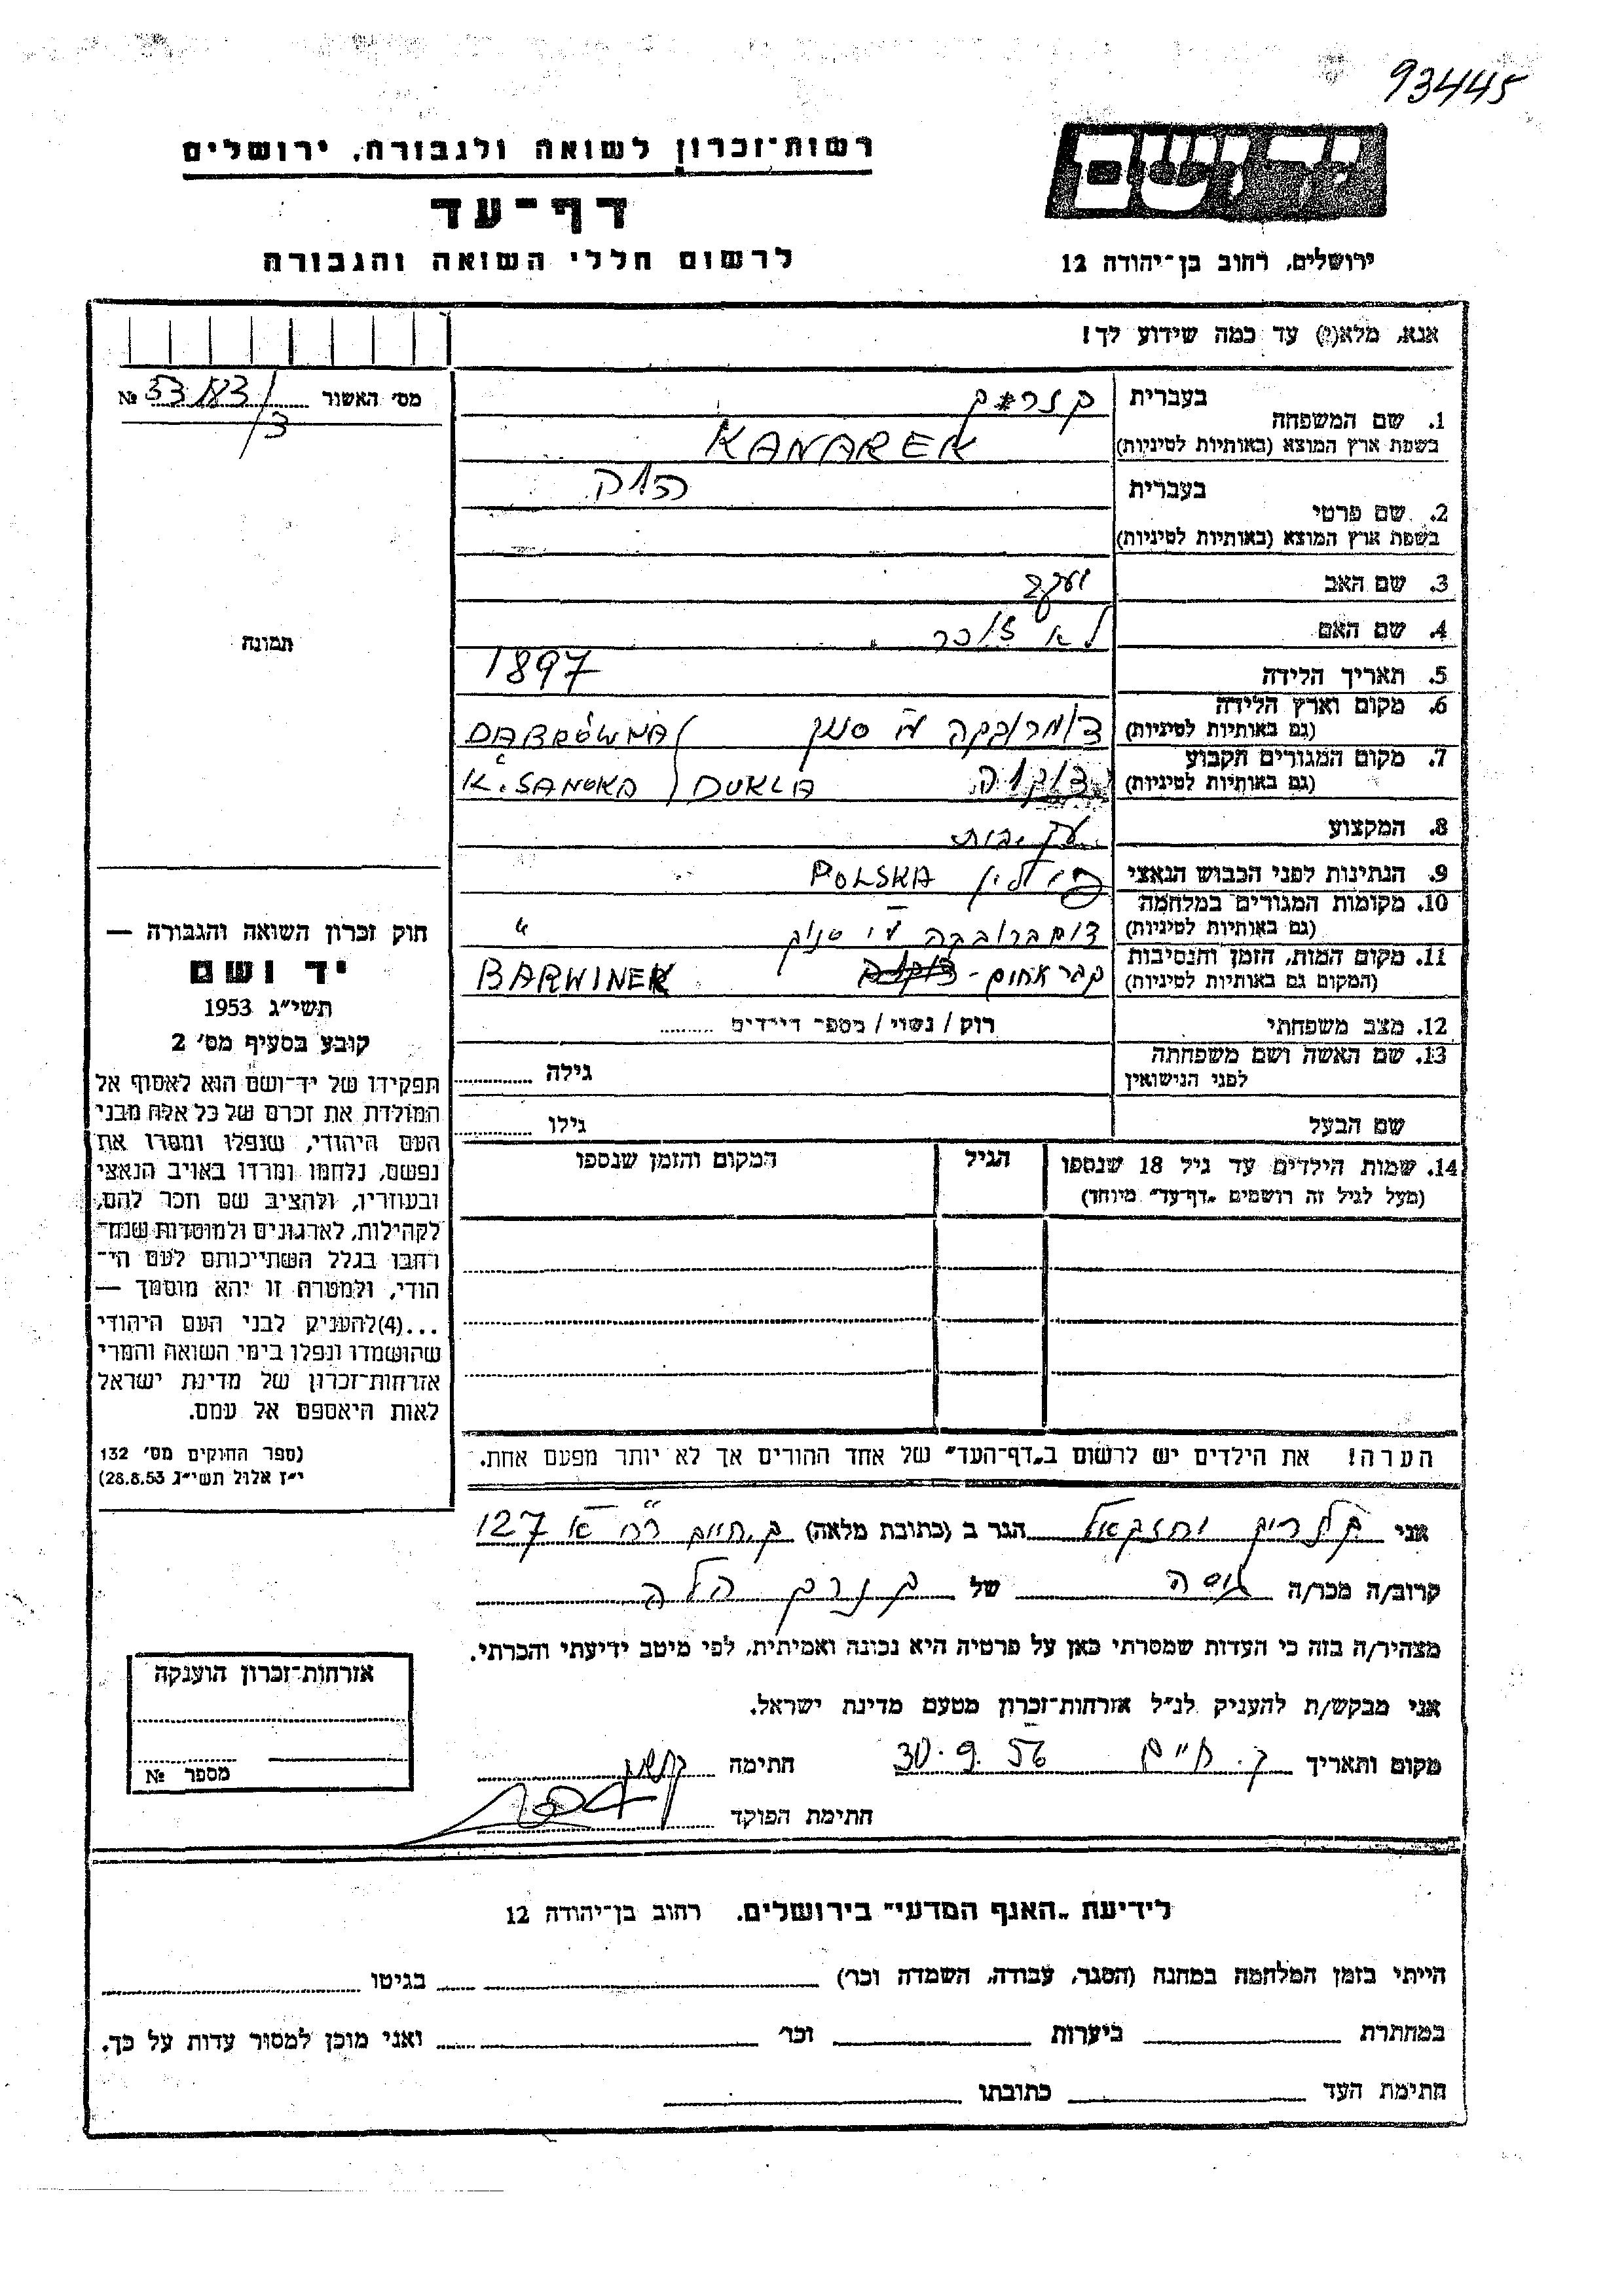 93445
יד ושם
רשות־זכרון לשואה ולגבורה, ירושלים
דף־עד
לרשום חללי השואה והגבורה
ירושלים, רחוב בן־יהודה 12
אנא, מלא(י) עד כמה שידוע לך!
מס׳ האשור № 53183/3
1. שם המשפחה
בעברית
בשפת ארץ המוצא (באותיות לטיניות) KANAREK
2. שם פרטי
בעברית
בשפת ארץ המוצא (באותיות לטיניות)
3. שם האב יעקב
4. שם האם לא זוכר
5. תאריך הלידה 1897
6. מקום וארץ הלידה
(גם באותיות לטיניות) DĄBRÓWKA
7. מקום המגורים הקבוע
(גם באותיות לטיניות) דוקלה DUKLA K. SANOKA
8. המקצוע
9. הנתינות לפני הכבוש הנאצי פולין POLSKA
10. מקומות המגורים במלחמה
(גם באותיות לטיניות) דומברובקה ע״י סנוק "
11. מקום המות, הזמן והנסיבות
(המקום גם באותיות לטיניות) קבר אחים - BARWINEK
12. מצב משפחתי רוק / נשוי / מספר הילדים
13. שם האשה ושם משפחתה
לפני הנישואין
גילה
שם הבעל
גילו
14. שמות הילדים עד גיל 18 שנספו
(מעל לגיל זה רושמים „דף־עד״ מיוחד)
הגיל
המקום והזמן שנספו
הערה! את הילדים יש לרשום ב„דף־העד״ של אחד ההורים אך לא יותר מפעם אחת.
תמונה
חוק זכרון השואה והגבורה —
יד ושם
תשי״ג 1953
קובע בסעיף מס׳ 2
תפקידו של יד־ושם הוא לאסוף אל
המולדת את זכרם של כל אלה מבני
העם היהודי, שנפלו ומסרו את
נפשם, נלחמו ומרדו באויב הנאצי
ובעוזריו, ולהציב שם וזכר להם,
לקהילות, לארגונים ולמוסדות שנח־
רבו בגלל השתייכותם לעם הי־
הודי, ולמטרה זו יהא מוסמך —
...(4)להעניק לבני העם היהודי
שהושמדו ונפלו בימי השואה והמרי
אזרחות־זכרון של מדינת ישראל
לאות היאספם אל עמם.
(ספר החוקים מס׳ 132
י״ז אלול תשי״ג 28.8.53)
אני יחזקאל הגר ב (כתובת מלאה) ק. חיים 127
קרוב/ה מכר/ה גיסה של
מצהיר/ה בזה כי העדות שמסרתי כאן על פרטיה היא נכונה ואמיתית, לפי מיטב ידיעתי והכרתי.
אני מבקש/ת להעניק לנ״ל אזרחות־זכרון מטעם מדינת ישראל.
מקום ותאריך ק. חיים 30.9.56 חתימה
חתימת הפוקד
אזרחות־זכרון הוענקה
מספר №
לידיעת „האגף המדעי״ בירושלים, רחוב בן־יהודה 12
הייתי בזמן המלחמה במחנה (הסגר, עבודה, השמדה וכו׳) בגיטו
במחתרת ביערות וכו׳ ואני מוכן למסור עדות על כך.
חתימת העד כתובתו